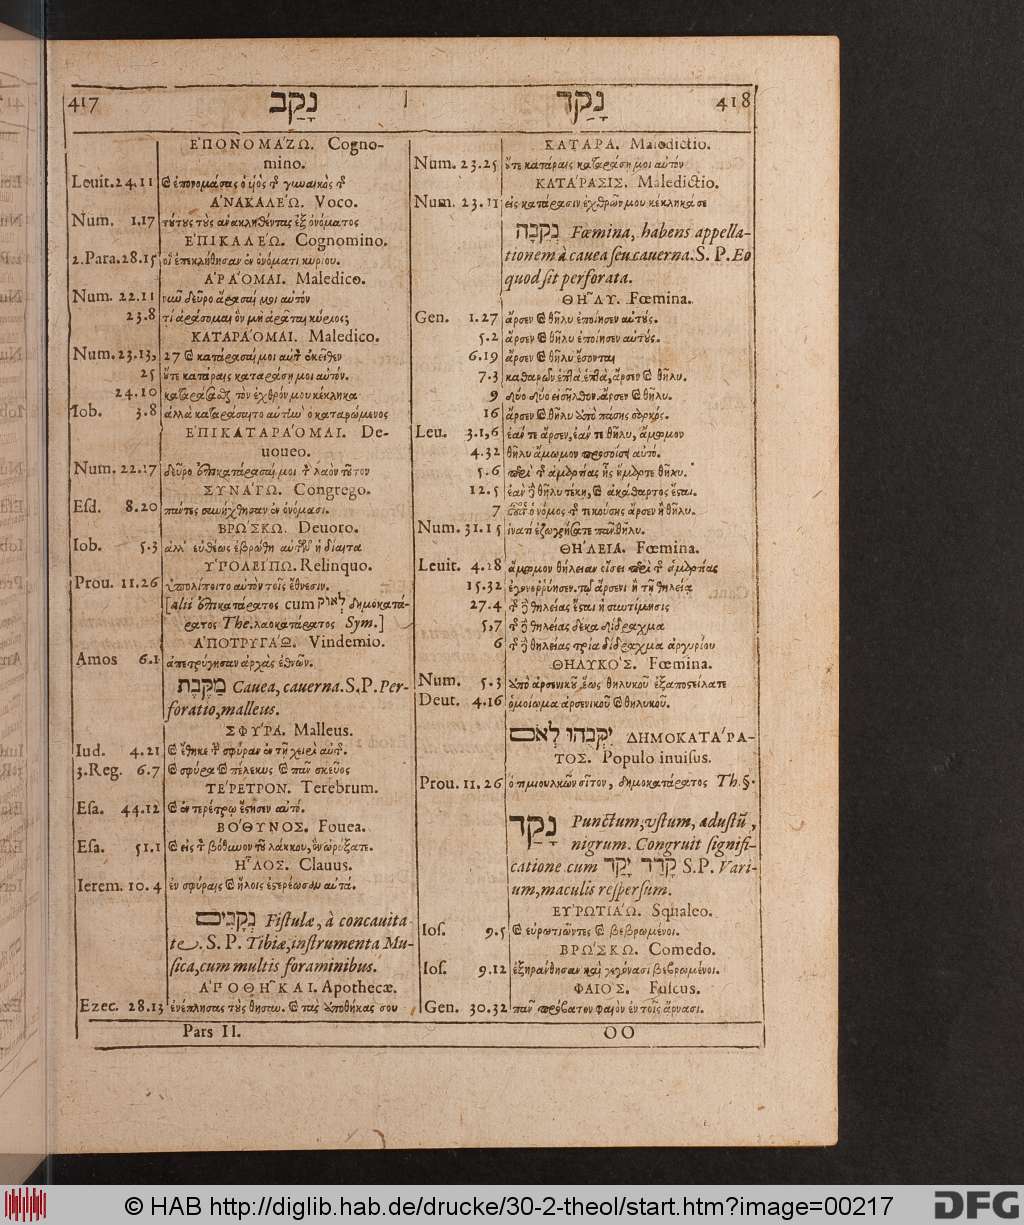 417 נָקַב
ΕΠΟΝΟΜΑΖΩ. Cogno-
mino.
Leuit. 24.11 ϗ ἐπονομάσας ὁ υἱὸς τ γυναικὸς τ
ΑΝΑΚΑΛΕΩ. Voco.
Num. 1.17 τούτους τοὺς ἀνακληθέντας ἐξ ὀνόματος
ΕΠΙΚΑΛΕΩ. Cognomino.
2.Para.28.15 οἳ ἐπεκλήθησαν ἐν ὀνόματι κυρίου.
ΑΡΑΟΜΑΙ. Maledico.
Num. 22.11 νῦν δεῦρο ἄρασαί μοι αὐτόν
23.8 τί ἀράσομαι ὃν μὴ ἀρᾶται κύριος;
ΚΑΤΑΡΑΟΜΑΙ. Maledico.
Num. 23.13, 27 ϗ κατάρασαί μοι αὐτ ἐκεῖθεν
25 οὔτε κατάραις καταράσῃ μοι αὐτόν.
24.10 καταρᾶσθαι τὸν ἐχθρόν μου κέκληκα
Iob. 3.8 ἀλλὰ καταράσαιτο αὐτὴν ὁ καταρώμενος
ΕΠΙΚΑΤΑΡΑΟΜΑΙ. De-
uoueo.
Num. 22.17 δεῦρο ἐπικατάρασαί μοι τ λαὸν τοῦτον
ΣΥΝΑΓΩ. Congrego.
Esd. 8.20 πάντες συνήχθησαν ἐν ὀνόμασι.
ΒΡΩΣΚΩ. Deuoro.
Iob. 5.3 ἀλλ' εὐθέως ἐβρώθη αὐτῶν ἡ δίαιτα
ΥΠΟΛΕΙΠΩ. Relinquo.
Prou. 11.26 ὑπολίποιτο αὐτὸν τοῖς ἔθνεσιν.
[alii ἐπικατάρατος cum לְאוֹם δημοκατά-
ρατος The. λαοκατάρατος Sym.]
ΑΠΟΤΡΥΓΑΩ. Vindemio.
Amos 6.1 ἀπετρύγησαν ἀρχὰς ἐθνῶν.
מַקֶּבֶת Cauea, cauerna. S. P. Per-
foratio, malleus.
ΣΦΥΡΑ. Malleus.
Iud. 4.21 ϗ ἔθηκε τ σφῦραν ἐν τῇ χειρὶ αὐτ.
3.Reg. 6.7 ϗ σφύρα ϗ πέλεκυς ϗ πᾶν σκεῦος
ΤΕΡΕΤΡΟΝ. Terebrum.
Esa. 44.12 ϗ ἐν τερέτρῳ ἔτησεν αὐτό.
ΒΟΘΥΝΟΣ. Fouea.
Esa. 51.1 ϗ εἰς τ βόθυνον τοῦ λάκκου, ὃν ὠρύξατε.
ΗΛΟΣ. Clauus.
Ierem. 10.4 ἐν σφύραις ϗ ἥλοις ἐστερέωσαν αὐτά.
נְקָבִים Fistulæ, à concauita-
te. S. P. Tibiæ, instrumenta Mu-
sica, cum multis foraminibus.
ΑΠΟΘΗΚΑΙ. Apothecæ.
Ezec. 28.13 ἐνέπλησας τοὺς θησαυ. ϗ τὰς ὑποθήκας σου
Pars II.
נָקַד 418
ΚΑΤΑΡΑ. Maledictio.
Num. 23.25 οὔτε κατάραις καταράσῃ μοι αὐτόν
ΚΑΤΑΡΑΣΙΣ. Maledictio.
Num. 23.11 εἰς κατάρασιν ἐχθρῶν μου κέκληκά σε
נְקֵבָה Fœmina, habens appella-
tionem à cauea seu cauerna. S. P. Eo
quod sit perforata.
ΘΗΛΥ. Fœmina.
Gen. 1.27 ἄρσεν ϗ θῆλυ ἐποίησεν αὐτούς.
5.2 ἄρσεν ϗ θῆλυ ἐποίησεν αὐτούς.
6.19 ἄρσεν ϗ θῆλυ ἔσονται
7.3 καθαρῶν ἑπτὰ ἑπτὰ, ἄρσεν ϗ θῆλυ.
9 δύο δύο εἰσῆλθον ἄρσεν ϗ θῆλυ.
16 ἄρσεν ϗ θῆλυ ἀπὸ πάσης σαρκός.
Leu. 3.1,6 ἐάν τε ἄρσεν, ἐάν τε θῆλυ, ἄμωμον
4.32 θῆλυ ἄμωμον προσοίσει αὐτό.
5.6 περὶ τ ἁμαρτίας ἧς ἥμαρτε θῆλυ.
12.5 ἐὰν δὲ θῆλυ τέκῃ, ϗ ἀκάθαρτος ἔσται.
7 οὗτος ὁ νόμος τ τικούσης ἄρσεν ἢ θῆλυ.
Num. 31.15 ἱνατί ἐζωγρήσατε πᾶν θῆλυ.
ΘΗΛΕΙΑ. Fœmina.
Leuit. 4.28 ἄμωμον θήλειαν οἴσει περὶ τ ἁμαρτίας
15.32 ἐν γονοῤῥύησεν. τῷ ἄρσενι ἢ τῇ θηλείᾳ
27.4 τ δὲ θηλείας ἔσται ἡ συντίμησις
5,7 τ δὲ θηλείας δέκα δίδραχμα
6 τ δὲ θηλείας τρία δίδραχμα ἀργυρίου
ΘΗΛΥΚΟΣ. Fœmina.
Num. 5.3 ἀπὸ ἀρσενικοῦ, ἕως θηλυκοῦ ἐξαποστείλατε
Deut. 4.16 ὁμοίωμα ἀρσενικοῦ ϗ θηλυκοῦ.
יִקְּבֻהוּ לְאֹם ΔΗΜΟΚΑΤΑΡΑ-
ΤΟΣ. Populo inuisus.
Prou. 11.26 ὁ τιμιουλκῶν σῖτον, δημοκατάρατος Th. §.
נָקַד Punctum, vstum, adustũ,
nigrum. Congruit signifi-
catione cum קָדַר יָקַד S.P. Vari-
um, maculis respersum.
ΕΥΡΩΤΙΑΩ. Squaleo.
Ios. 9.5 ϗ εὐρωτιῶντες ϗ βεβρωμένοι.
ΒΡΩΣΚΩ. Comedo.
Ios. 9.12 ἐξηράνθησαν καὶ γεγόνασι βεβρωμένοι.
ΦΑΙΟΣ. Fuscus.
Gen. 30.32 πᾶν πρόβατον φαιὸν ἐν τοῖς ἄρνασι.
OO
© HAB http://diglib.hab.de/drucke/30-2-theol/start.htm?image=00217
DFG